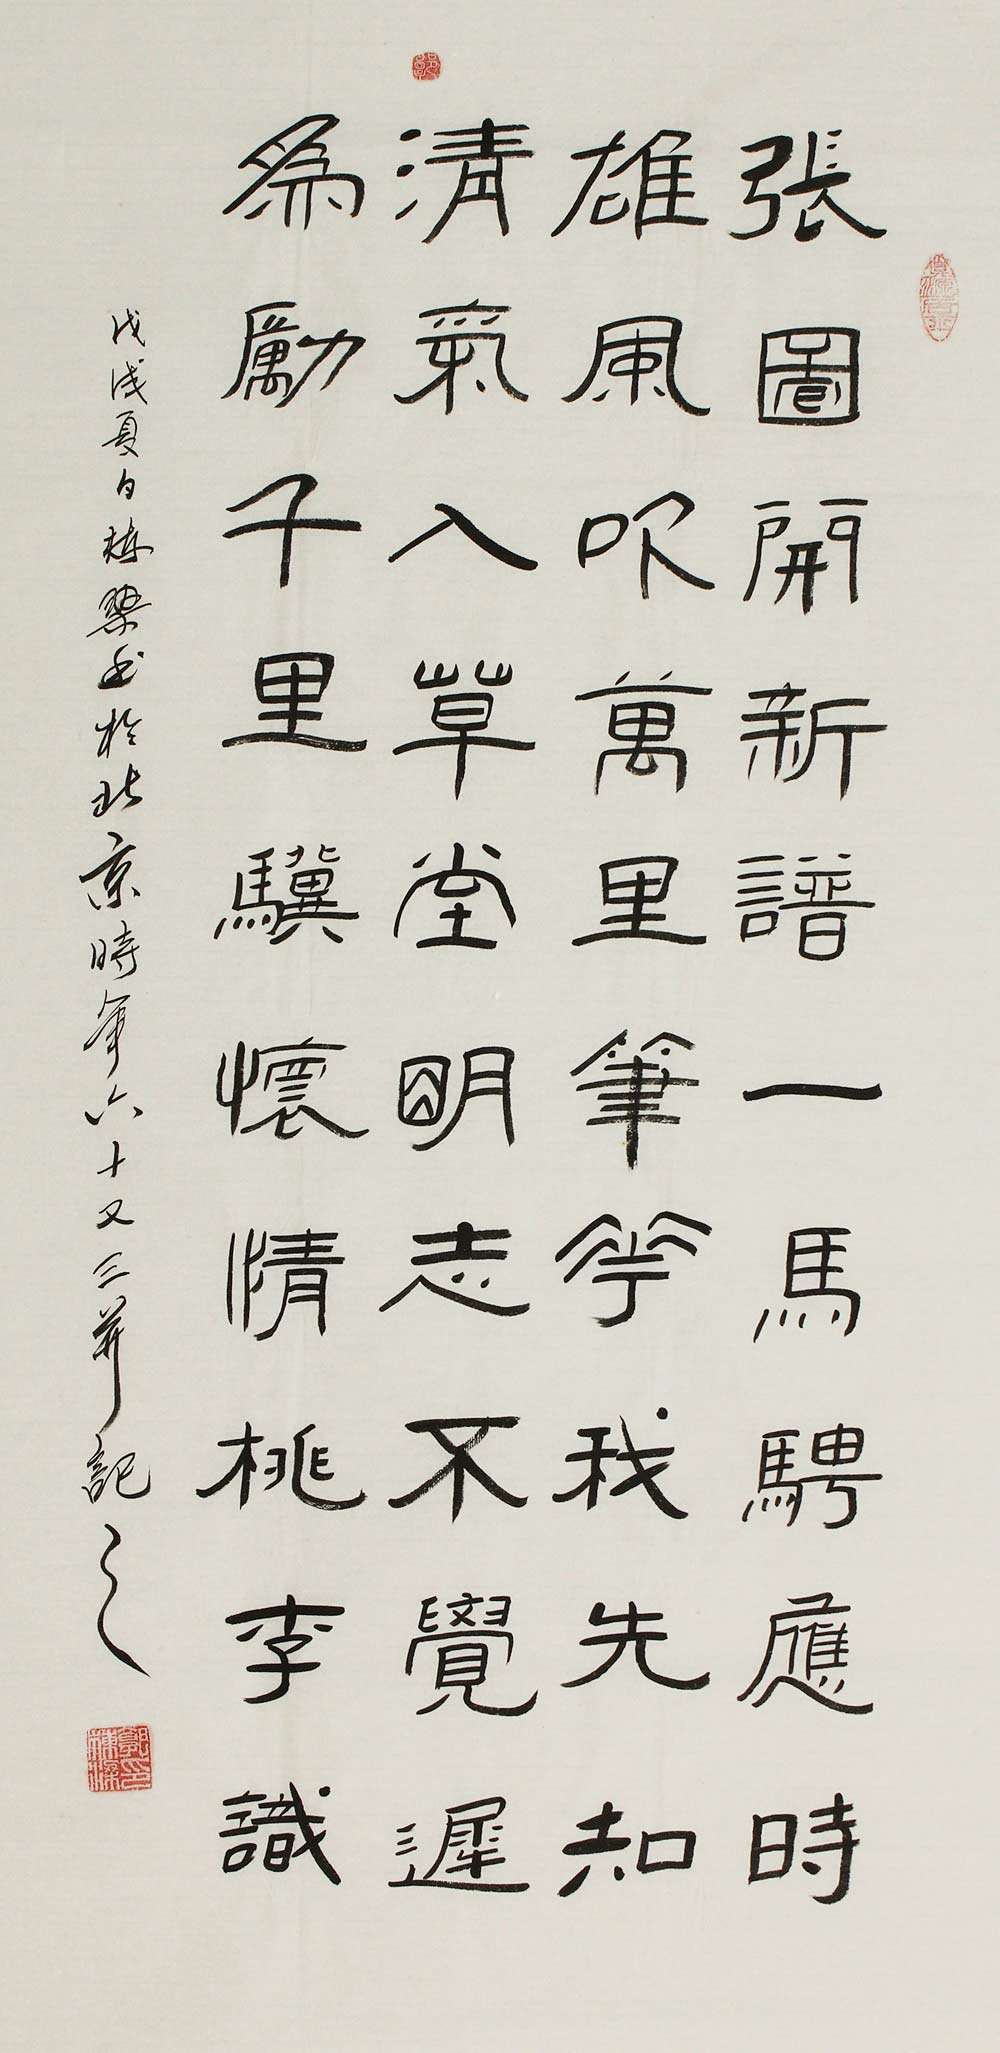 張圖開新譜一馬騁應時
雄風吹萬里筆華我先知
清氣入草堂明志不覺遲
爲勵千里驥懷情桃李識
戊戌夏日棟梁書於北京時年六十又三并記之
郭印棟梁